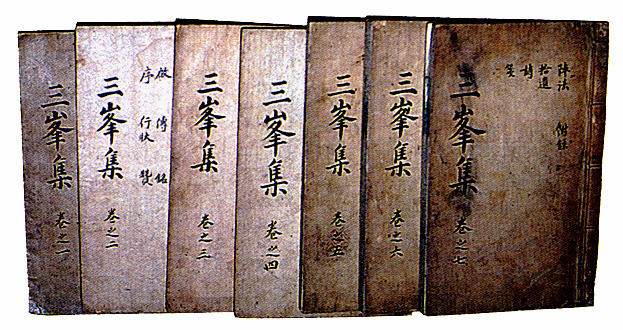 三峯集
卷之一
三峯集
卷之二
序 行狀 贊
傳 銘
三峯集
卷之三
三峯集
卷之四
三峯集
卷之五
三峯集
卷之六
三峯集
卷之七
陣法 附錄
拾遺
詩
箋